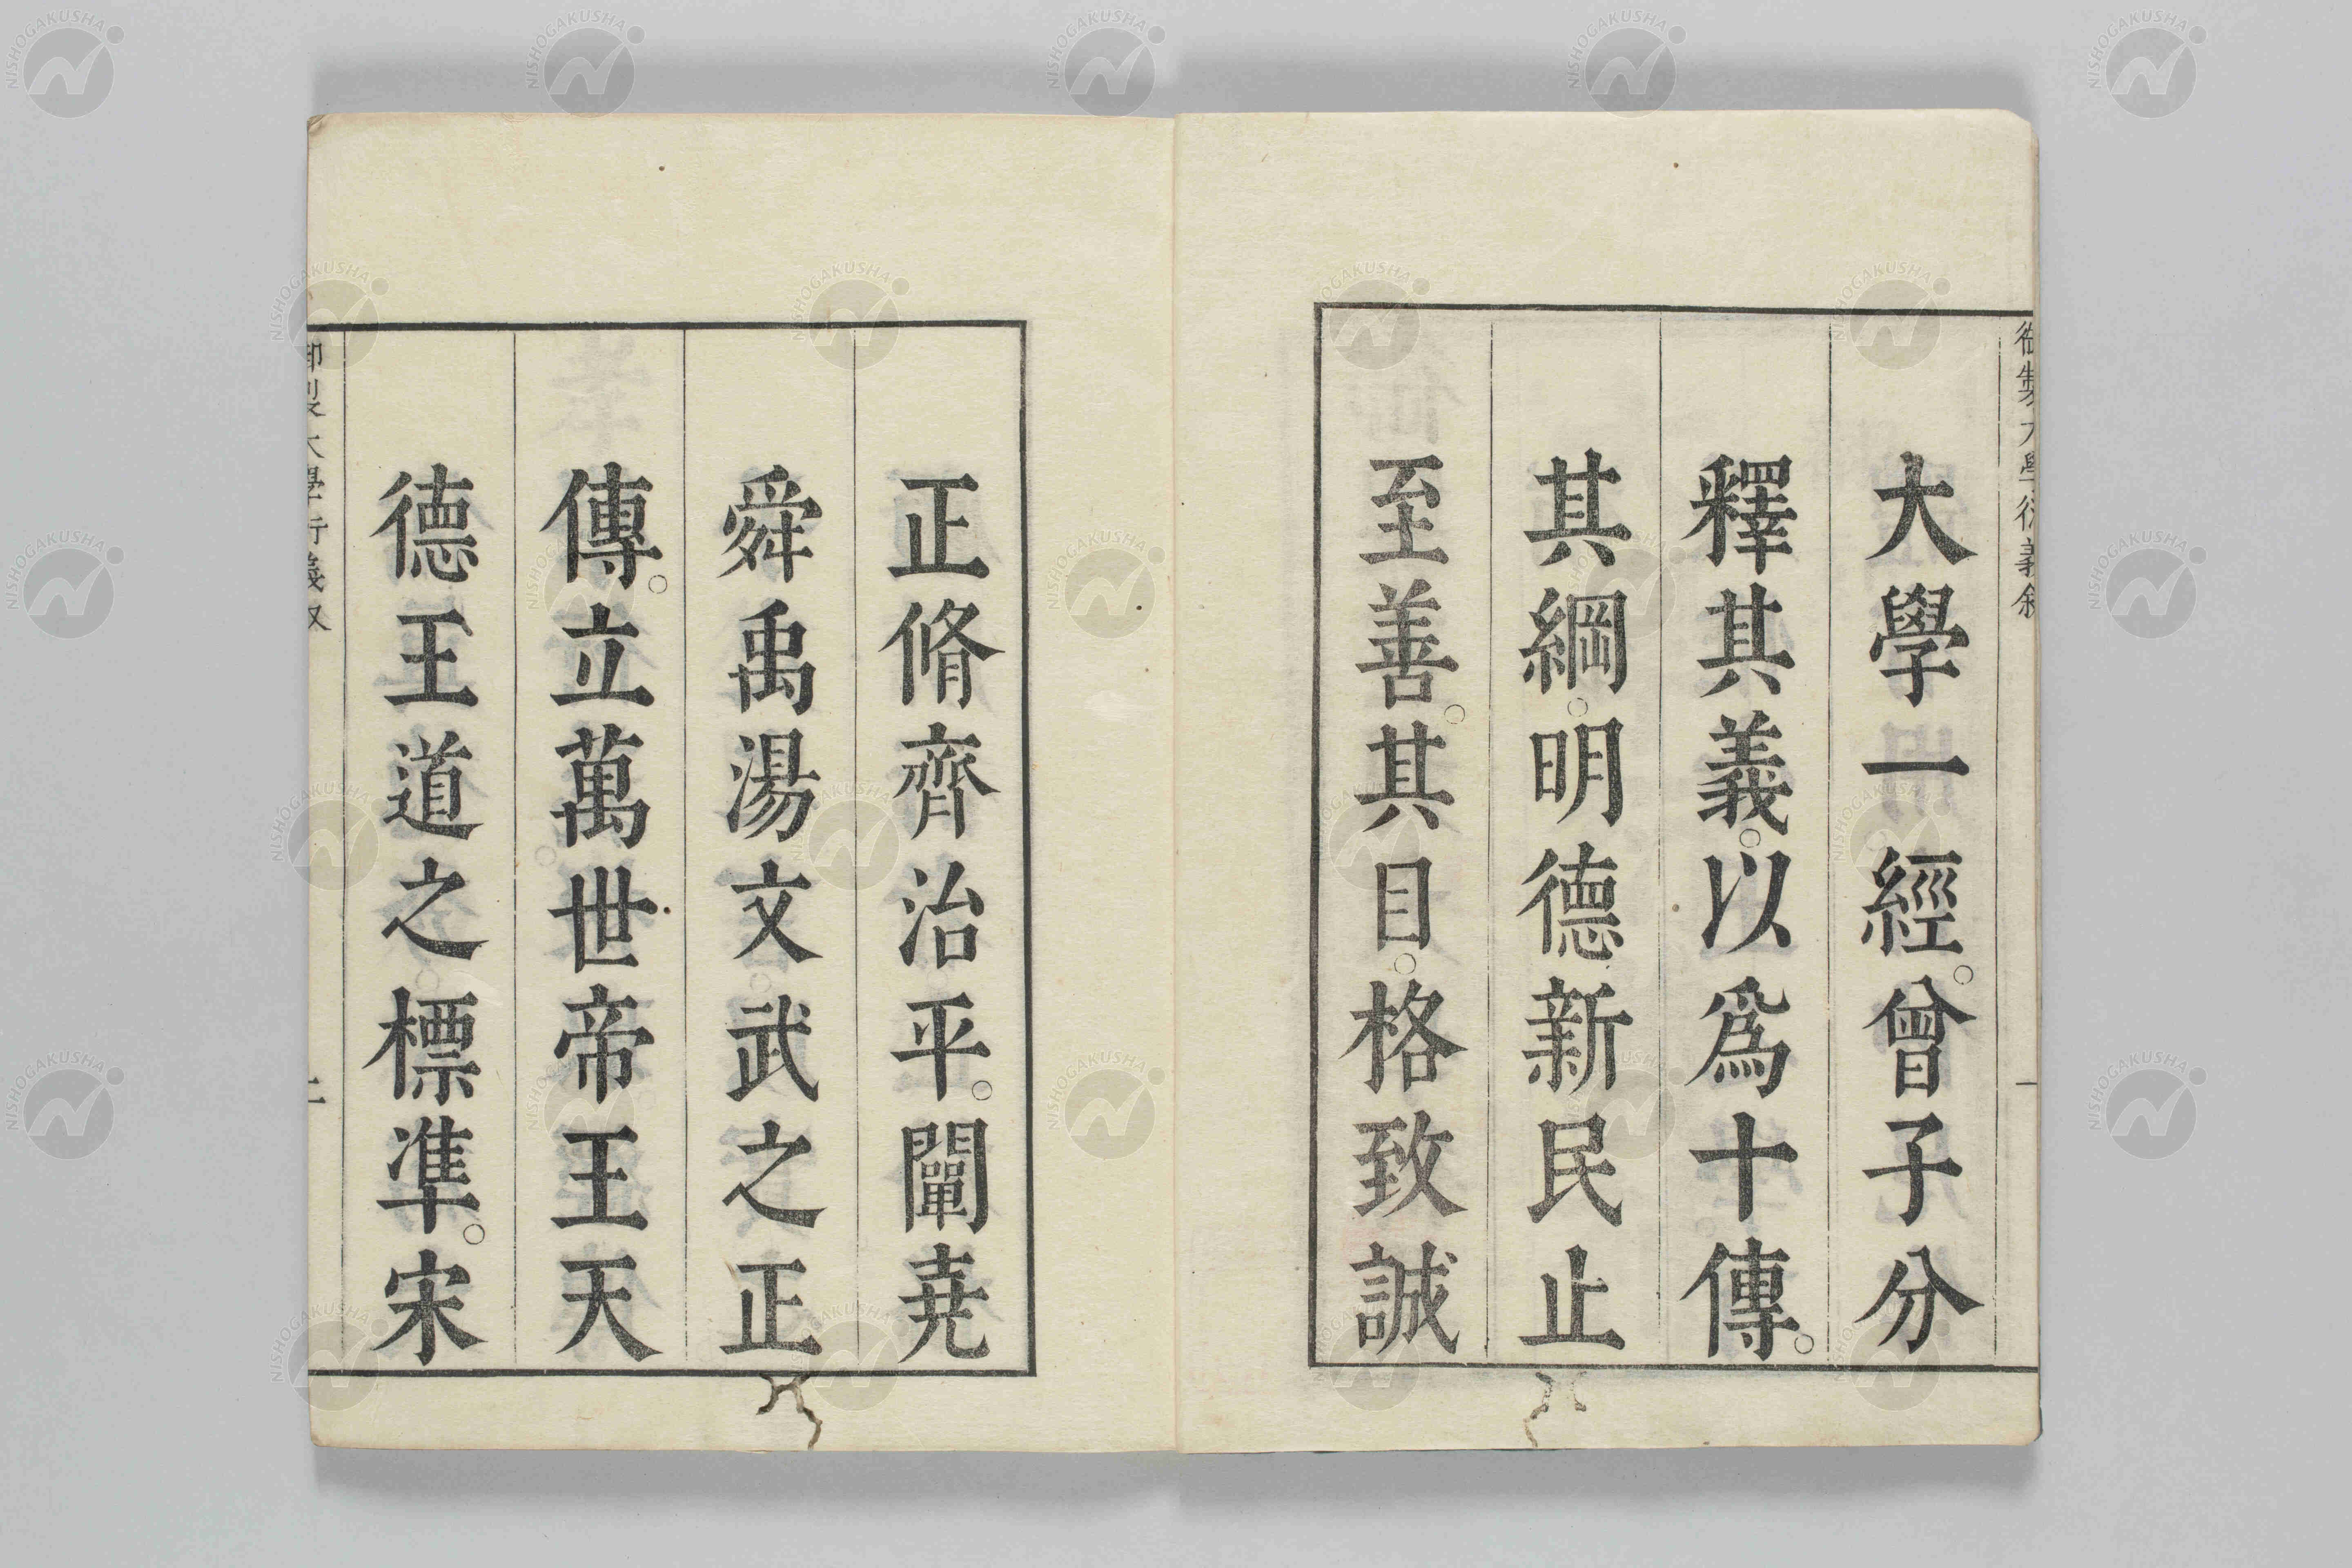 御製大學衍義叙
一
大學一經。曾子分
釋其義。以爲十傳。
其綱。明德新民止
至善。其目。格致誠
正脩齊治平。闡堯
舜禹湯文武之正
傳。立萬世帝王天
德王道之標準。宋
御製大學衍義叙
二
NISHOGAKUSHA